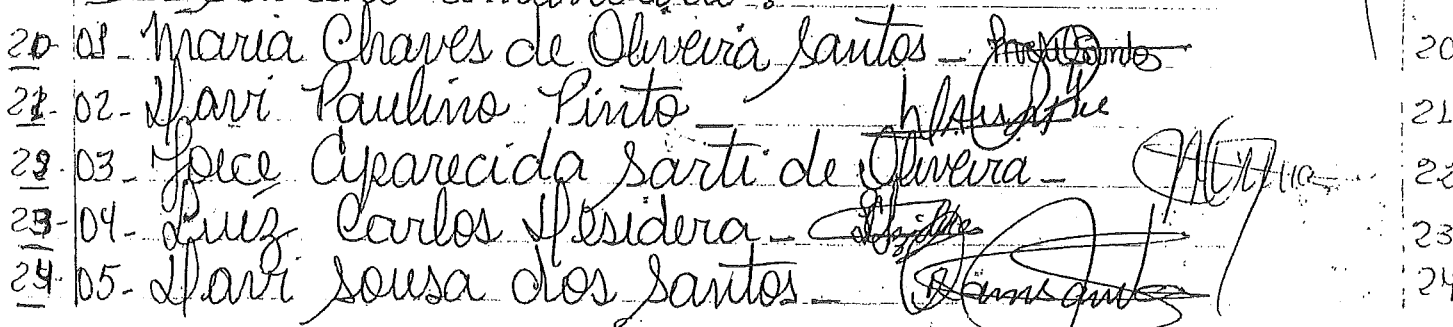 20- 01- Maria Chaves de Oliveira Santos - 20
21- 02- Davi Paulino Pinto - 21
22- 03- Joice Aparecida Sarti de Oliveira - 22
23- 04- Luiz Carlos Desidera - 23
24- 05- Davi Sousa dos Santos - 24